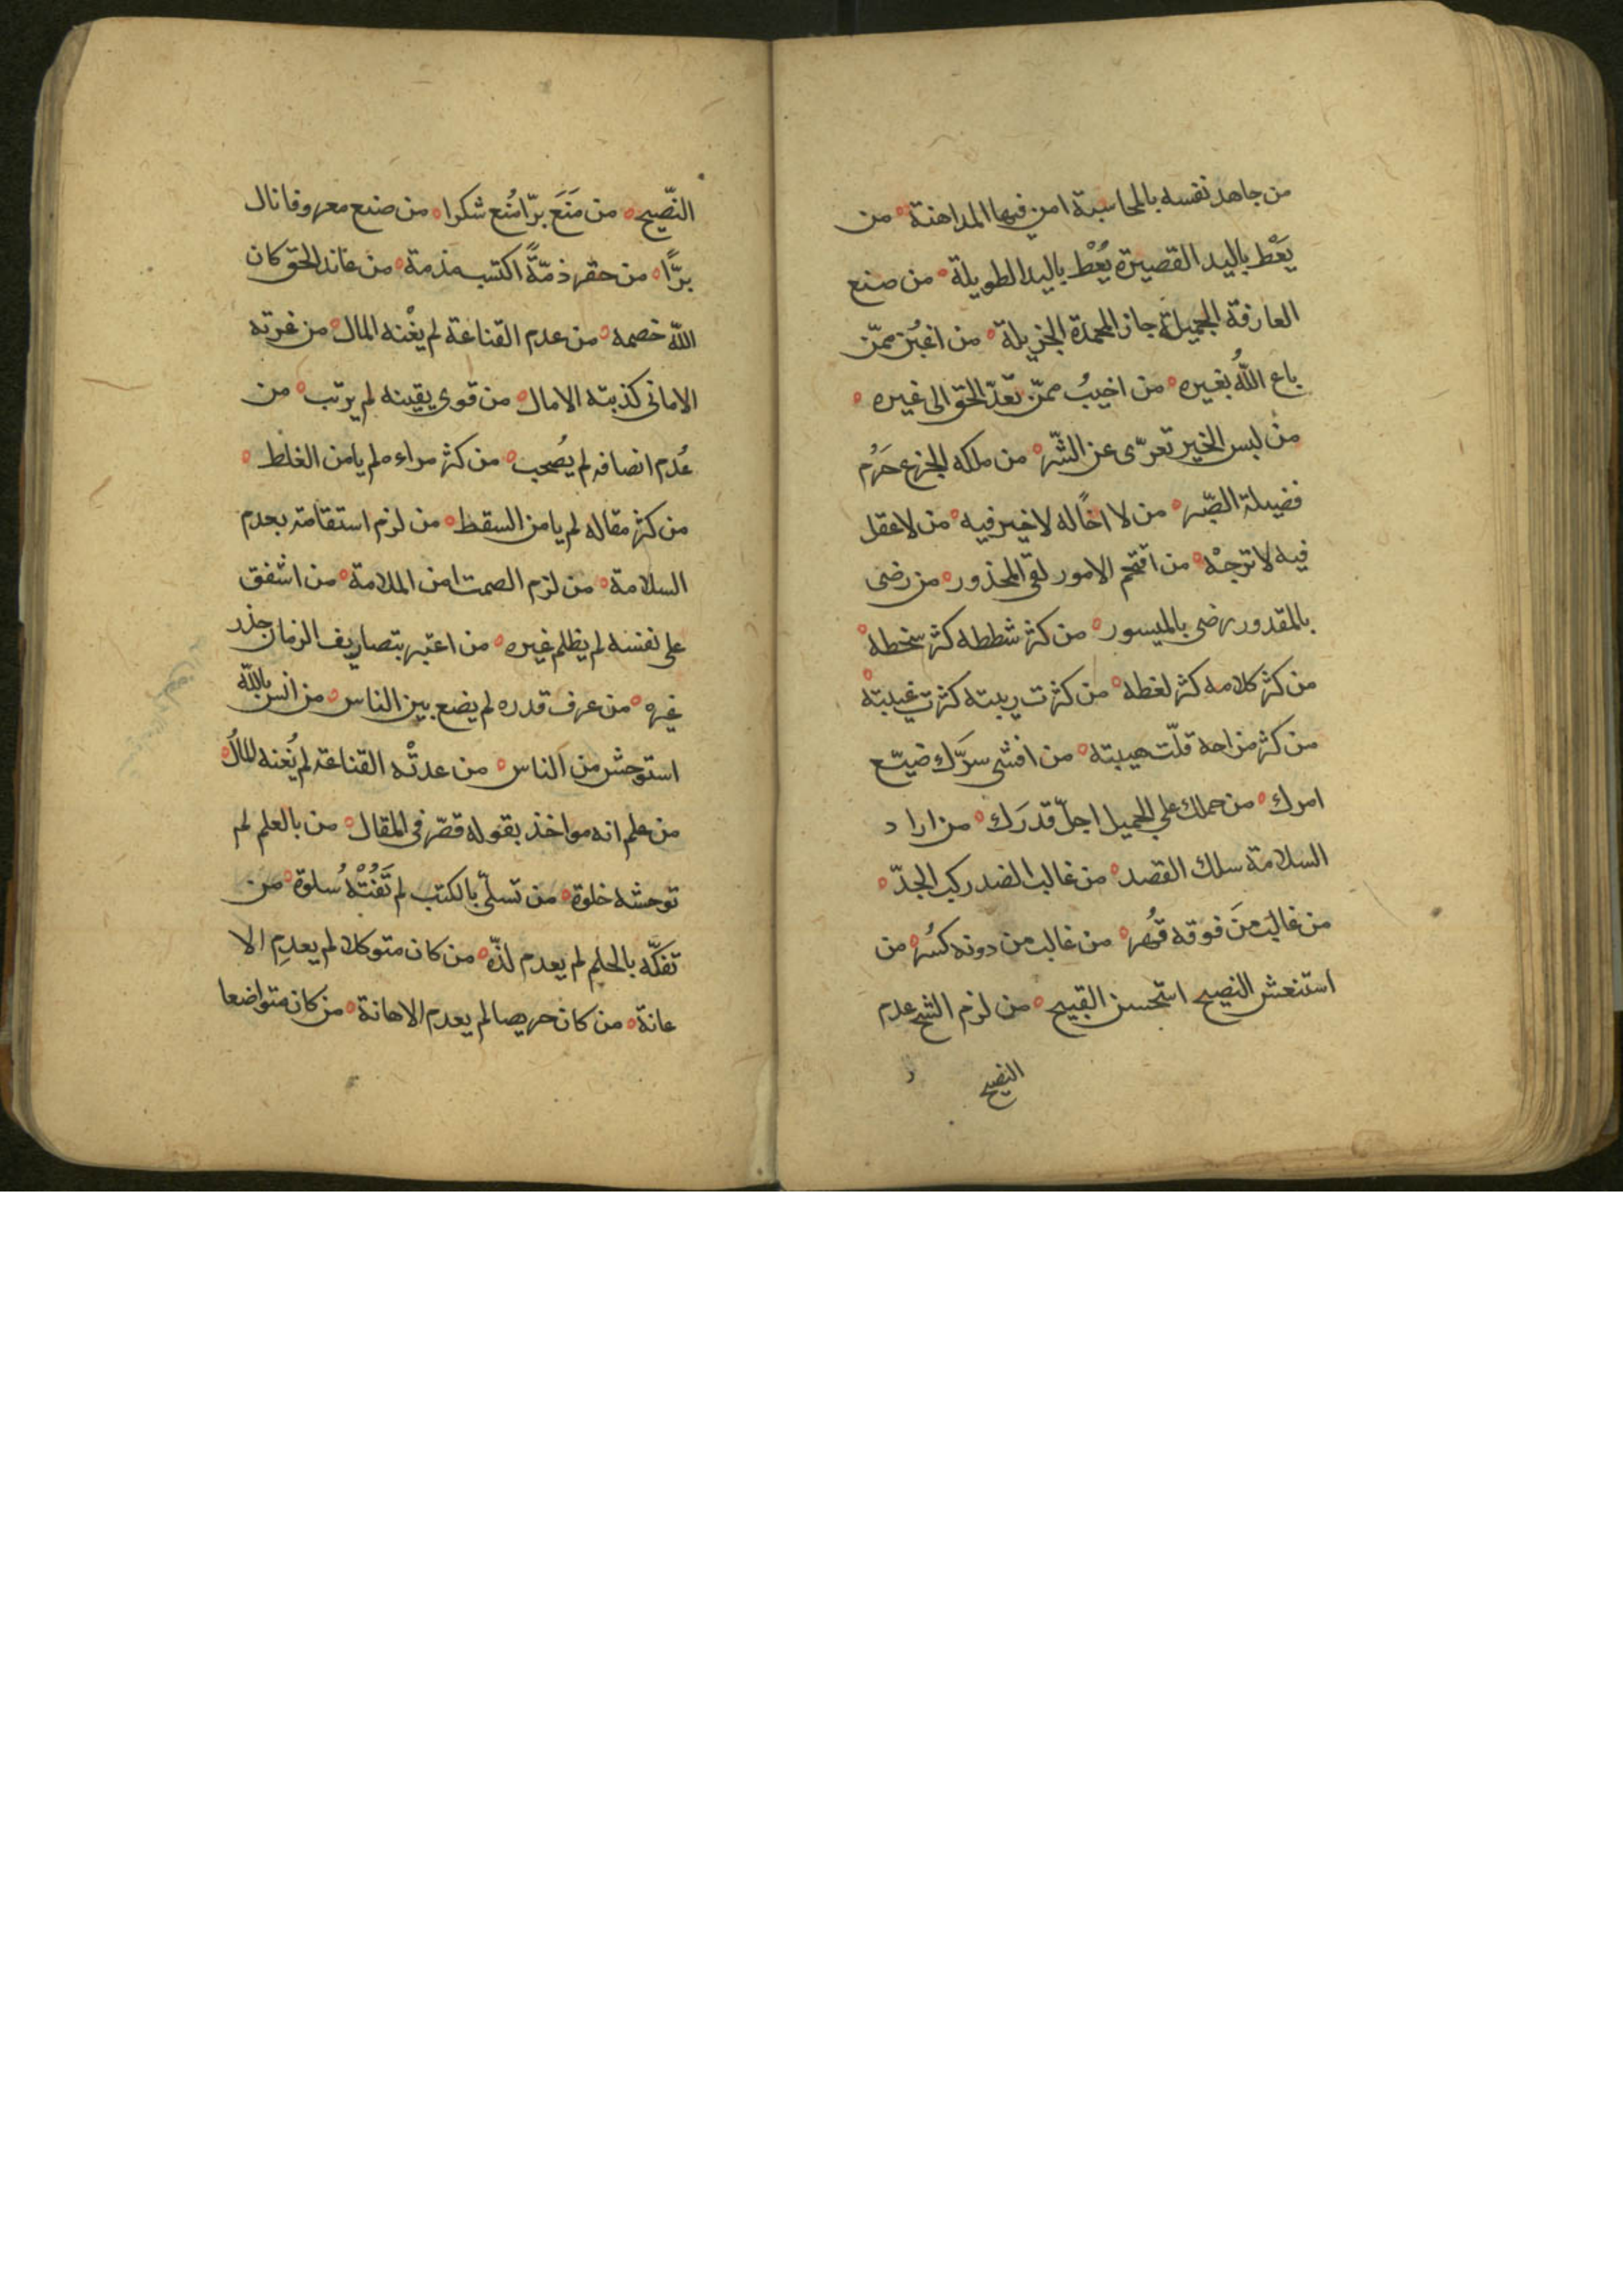 من جاهد نفسه بالمحاسبة امن فيها المداهنة ه من
يَعْطِ باليد القصيرة يُعْطَ باليد الطويلة ه من صنع
العارفة الجميلة حاز المحمدة الجزيلة ه من اغبن ممّن
باع اللّٰه بغيره ه من اخيبُ ممّن تعدّ الحق الى غيره ه
من لبس الخير تعرّى عن الشّر ه من ملكه الجزع حَرُم
فضيلة الصّبر ه من لا اخًا له لا خير فيه ه من لا عقل
فيه لا ترجْه ه من اقتحم الامور لقى المحذور ه من رضى
بالمقدور رضى بالميسور ه من كثر شططه كثر سخطه ه
من كثر كلامه كثر لغطه ه من كثرت ريبته كثرت غيبته ه
من كثر مزاحه قلّت هيبته ه من افشى سرّك ضيّع
امرك ه من حملك على الجميل اجلّ قدرَك ه من اراد
السلامة سلك القصد ه من غالب الضد ركب الجدّ ه
من غالب مَن فوقه قُهر ه من غالب من دونه كسُر ه من
استنعش النصيح استحسن القبيح ه من لزم الشح عدم
النصيح
النّصيح ه من مَنَعَ برّا مُنع شكرا ه من صنع معروفا نال
برًّا ه من حقر ذمّةً اكتسب مذمة ه من عاند الحق كان
اللّٰه خصمه ه من عدم القناعة لم يغْنه المال ه من غرته
الامانى كذبته الامال ه من قوى يقينه لم يرتب ه من
عُدم انصافه لم يُصحب ه من كثر مراءه لم يامن الغلط ه
من كثر مقاله لم يامن السقط ه من لزم استقامته بعدم
السلامة ه من لزم الصمت امن الملامة ه من اشفق
على نفسه لم يظلم غيره ه من اعتبر بتصاريف الزمان حذر
غيره ه من عرف قدره لم يضع بين الناس ه من انس باللّٰه
استوحش من الناس ه من عدتْه القناعة لم يُغنه المالُ ه
من علم انه مواخذ بقوله قصّر فى المقال ه من بالعلم لم
توحشه خلوة ه من تسلّى بالكتب لم تَفُتْهُ سُلوة ه من
تفكّه بالحلم لم يعدم لذّه ه من كان متوكلا لم يعدِم الا
عانة ه من كان حريصا لم يعدم الاهانة ه من كان متواضعا